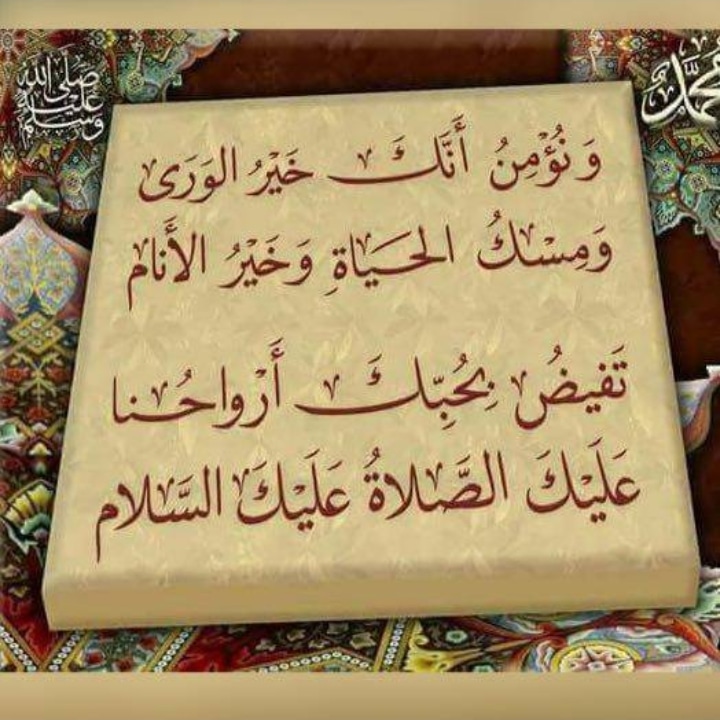 محمد
صلى الله عليه وسلم
وَنُؤْمِنُ أَنَّكَ خَيْرُ الوَرَى
وَمِسْكُ الحَيَاةِ وَخَيْرُ الأَنَام
تَفيضُ بِحُبِّكَ أَرْواحُنا
عَلَيْكَ الصَّلاةُ عَلَيْكَ السَّلام